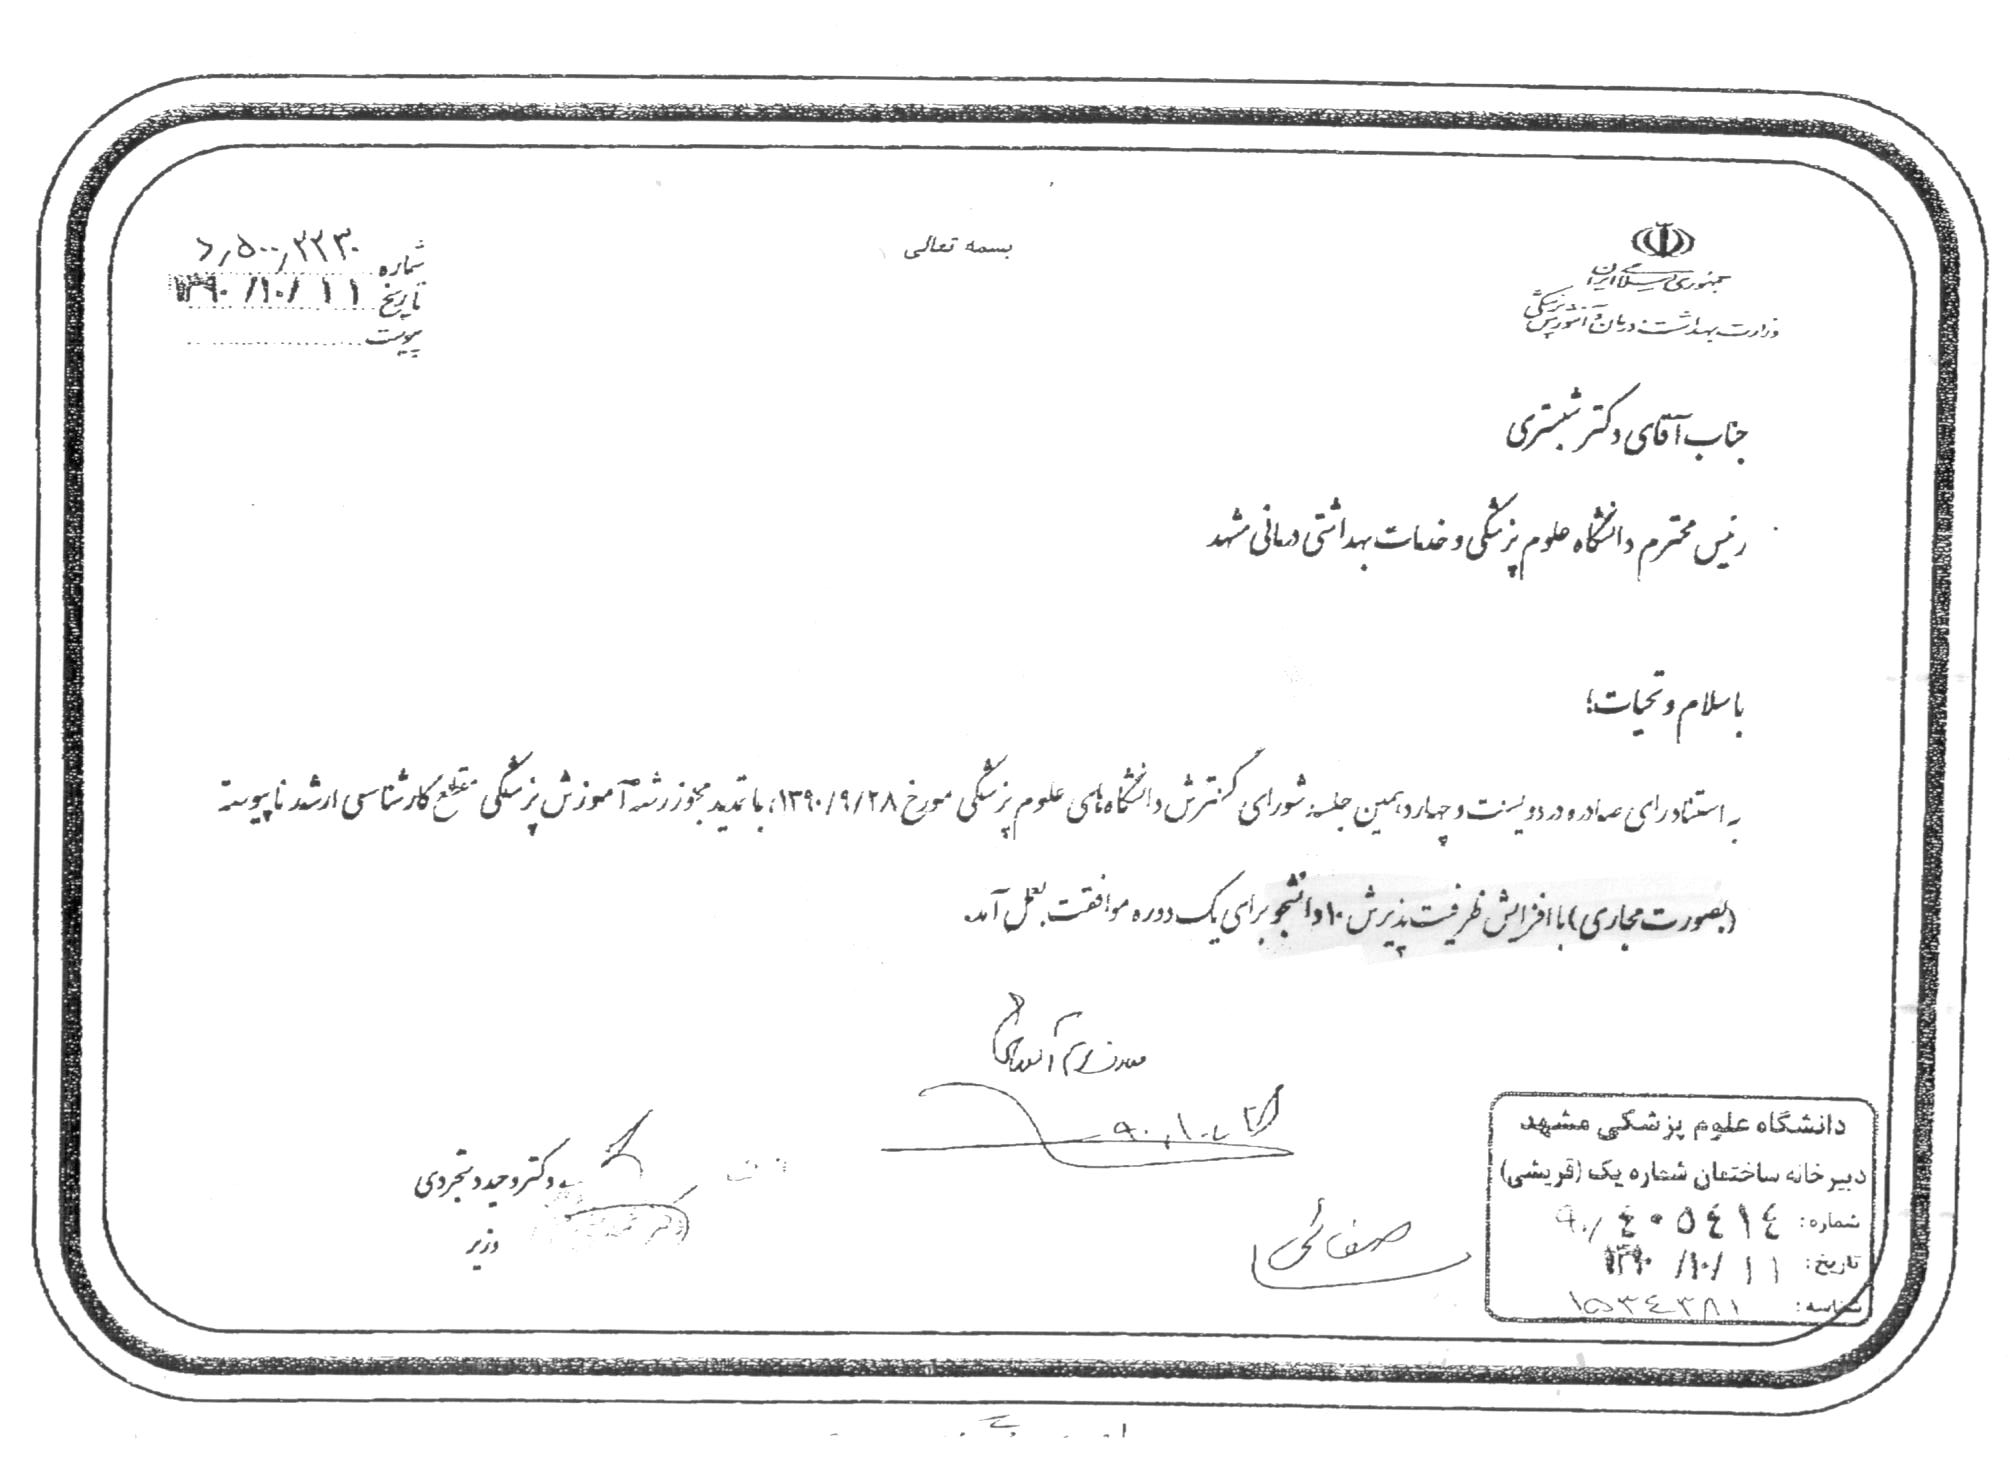 بسمه تعالی
جمهوری اسلامی ایران
وزارت بهداشت، درمان و آموزش پزشکی
شماره
تاریخ ۱۳۹۰/۱۰/۱۱
پیوست
جناب آقای دکتر شبستری
رئیس محترم دانشگاه علوم پزشکی و خدمات بهداشتی درمانی مشهد
با سلام و تحیات؛
به استناد رای صادره در دویست و چهاردهمین جلسه شورای گسترش دانشگاه‌های علوم پزشکی مورخ ۱۳۹۰/۹/۲۸، با تمدید مجوز رشته آموزش پزشکی مقطع کارشناسی ارشد ناپیوسته
(بصورت مجازی) با افزایش ظرفیت پذیرش ۱۰ دانشجو برای یک دوره موافقت بعمل آمد.
دکتر وحید دستجردی
وزیر
دانشگاه علوم پزشکی مشهد
دبیرخانه ساختمان شماره یک (قریشی)
شماره: ۹۰/۴۰۵۴۱۴
تاریخ: ۱۳۹۰/۱۰/۱۱
شناسه: ۱۵۳۴۳۸۱